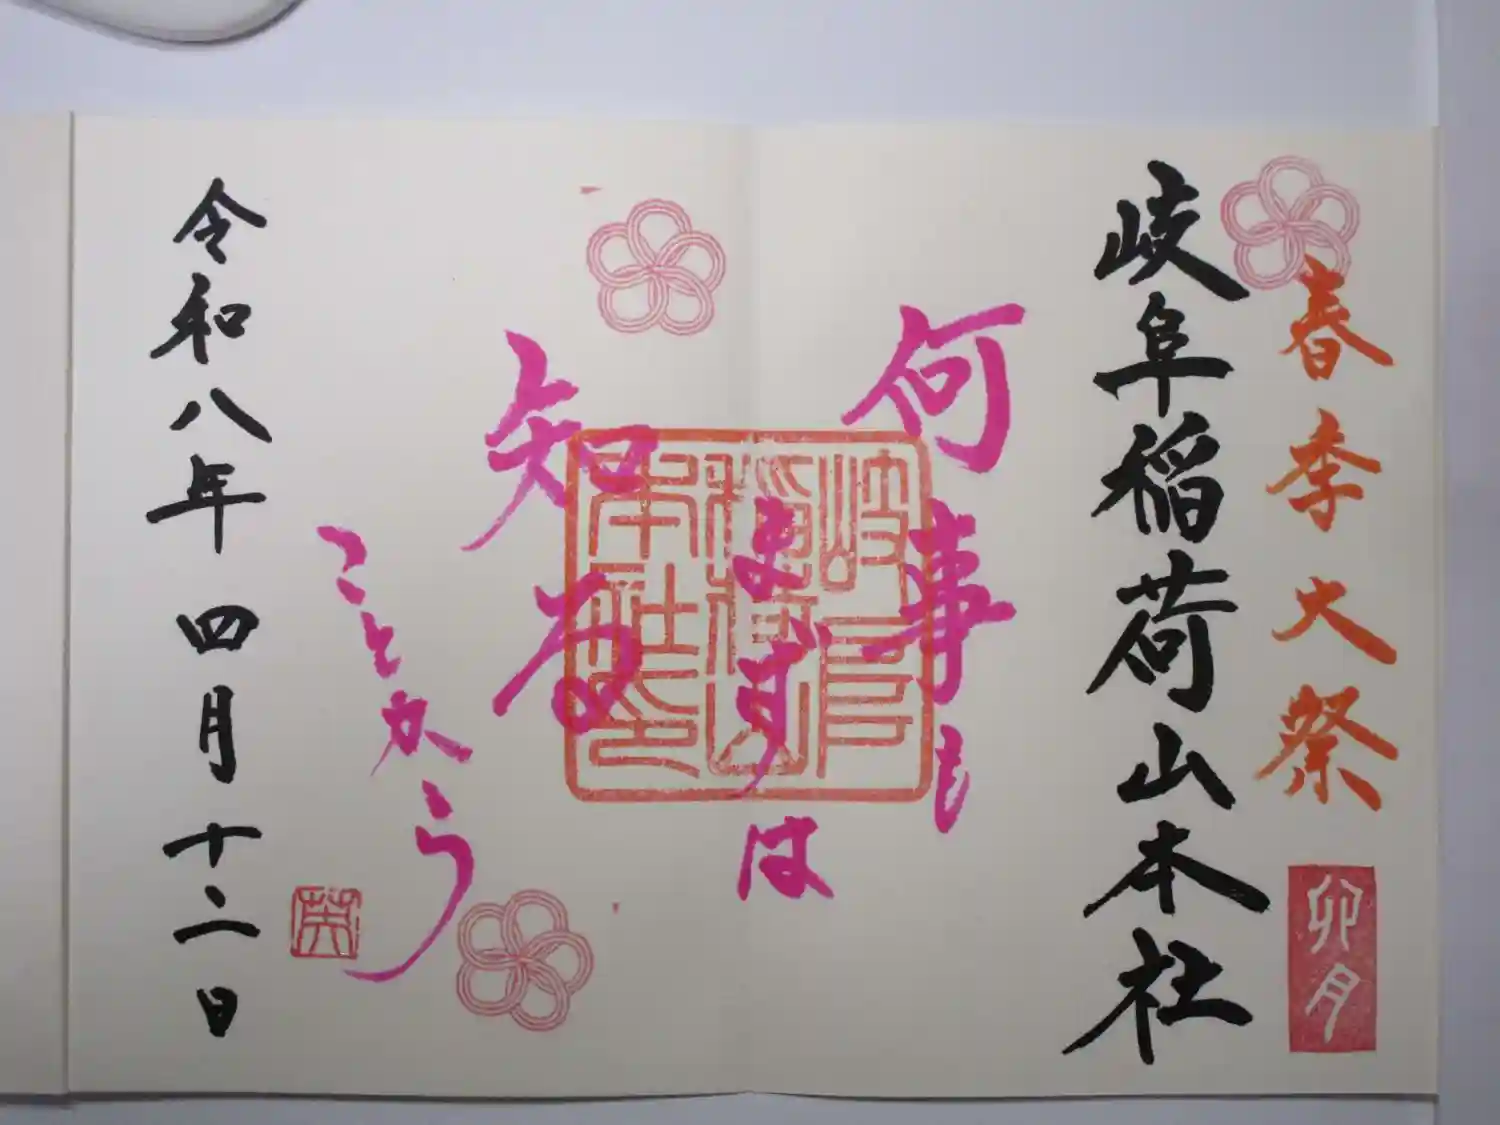 春季大祭
卯月
岐阜稲荷山本社
何事も
まずは
知る
ことから
岐阜
稲荷山
本社印
令和八年四月十二日